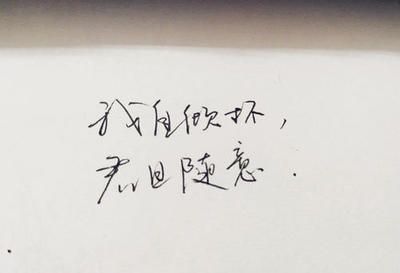 我自倾怀，
君且随意.